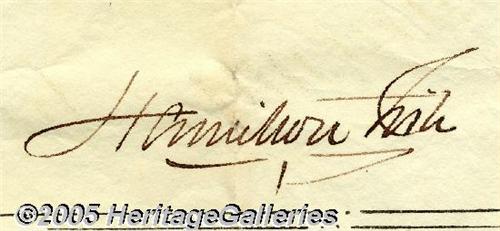 Hamilton Fish
©2005 HeritageGalleries